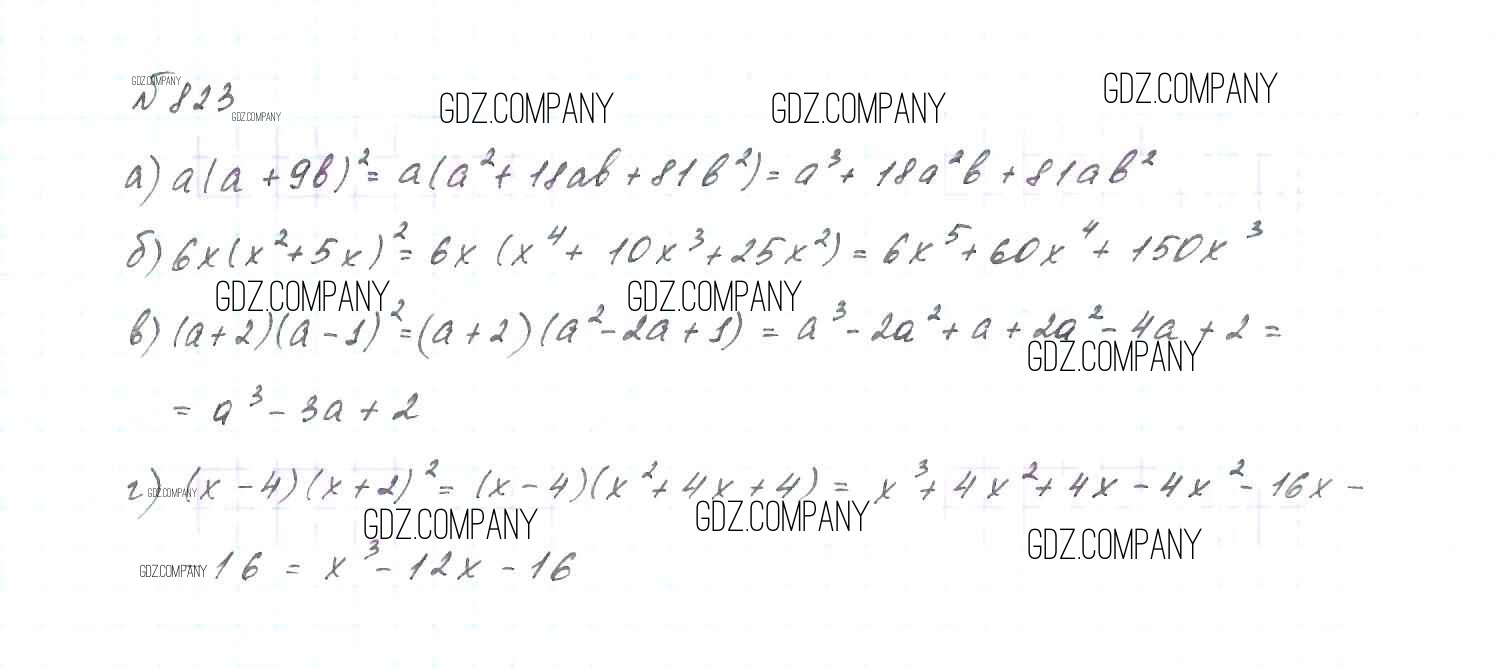 GDZ.COMPANY
№ 823
GDZ.COMPANY
GDZ.COMPANY GDZ.COMPANY GDZ.COMPANY
а) a(a + 9b)² = a(a² + 18ab + 81b²) = a³ + 18a²b + 81ab²
б) 6x(x² + 5x)² = 6x (x⁴ + 10x³ + 25x²) = 6x⁵ + 60x⁴ + 150x³
GDZ.COMPANY GDZ.COMPANY
в) (a + 2)(a - 1)² = (a + 2)(a² - 2a + 1) = a³ - 2a² + a + 2a² - 4a + 2 =
GDZ.COMPANY
= a³ - 3a + 2
г) (x - 4)(x + 2)² = (x - 4)(x² + 4x + 4) = x³ + 4x² + 4x - 4x² - 16x -
GDZ.COMPANY
GDZ.COMPANY GDZ.COMPANY GDZ.COMPANY
- 16 = x³ - 12x - 16
GDZ.COMPANY